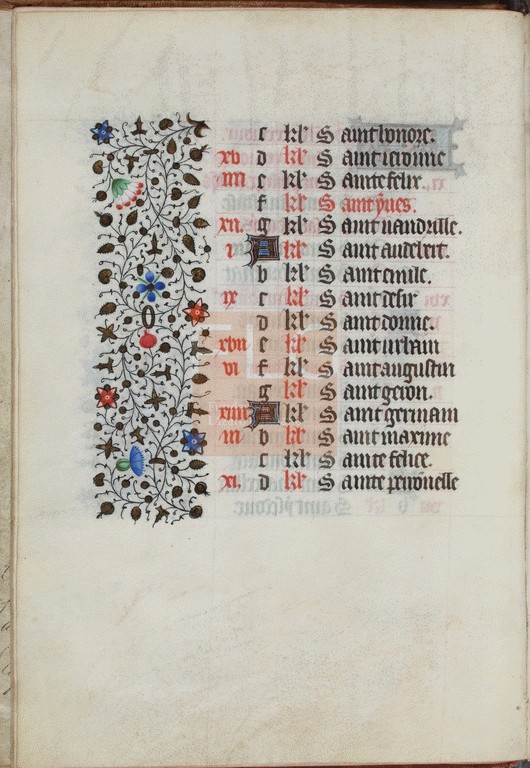 c kl' Saint honore.
xv d kl' Saint ieronme
iiii e kl' Sainte felix.
f kl' Saint yues.
xii g kl' Saint uandrille.
i A kl' Saint audebert.
b kl' Saint emile.
ix c kl' Saint desir
d kl' Saint donne.
xvii e kl' Saint urbain
vi f kl' Saint augustin
g kl' Saint geron.
xiiii A kl' Saint germain
iii b kl' Saint maxime
c kl' Sainte felice.
xi d kl' Sainte peronnelle